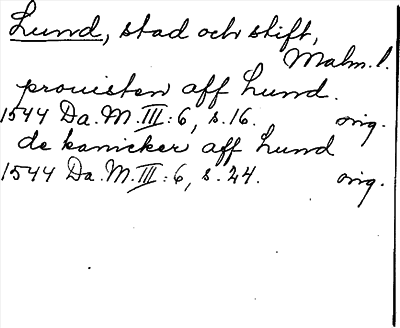 Lund, stad och stift,
Malm. l.
prouisten aff Lund.
1544 Da. M. III: 6, s. 16. orig.
de kanicker aff Lund
1544 Da. M. III: 6, s. 24. orig.